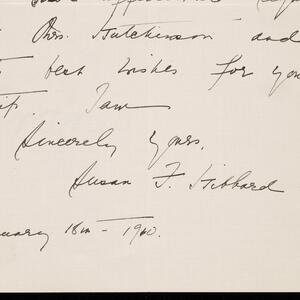 Mrs. Hutchinson and
best wishes for you
I am
Sincerely yours,
Susan F. Hibbard
nuary 18th - 1960.